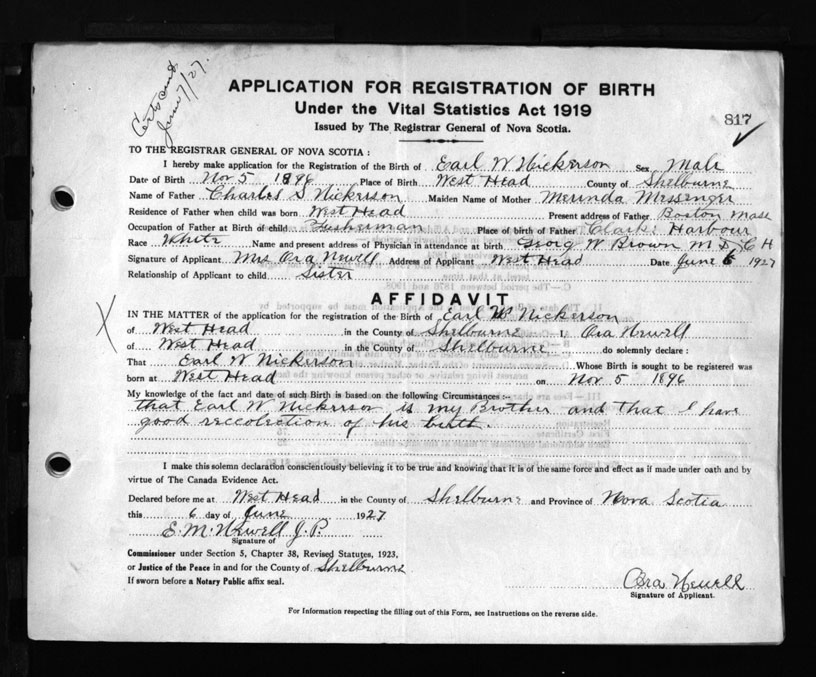 Certs sent
June 7/27.
APPLICATION FOR REGISTRATION OF BIRTH
Under the Vital Statistics Act 1919
Issued by The Registrar General of Nova Scotia.
817
TO THE REGISTRAR GENERAL OF NOVA SCOTIA :
I hereby make application for the Registration of the Birth of Earl W Nickerson Sex Male
Date of Birth Nov 5 1896 Place of Birth West Head County of Shelburne
Name of Father Charles S Nickerson Maiden Name of Mother Merinda Messenger
Residence of Father when child was born West Head Present address of Father Boston Mass
Occupation of Father at Birth of child Fisherman Place of birth of Father Clarks Harbour
Race White Name and present address of Physician in attendance at birth Georg W Brown M D, C H
Signature of Applicant Mrs Ora Newell Address of Applicant West Head Date June 6 1927
Relationship of Applicant to child Sister
AFFIDAVIT
IN THE MATTER of the application for the registration of the Birth of Earl W Nickerson
of West Head in the County of Shelburne I, Ora Newell
of West Head in the County of Shelburne do solemnly declare :
That Earl W Nickerson Whose Birth is sought to be registered was
born at West Head on Nov 5 1896
My knowledge of the fact and date of such Birth is based on the following Circumstances :-
that Earl W Nickerson is my Brother and that I have
good reccolection of his birth.
I make this solemn declaration conscientiously believing it to be true and knowing that it is of the same force and effect as if made under oath and by
virtue of The Canada Evidence Act.
Declared before me at West Head in the County of Shelburne and Province of Nova Scotia
this 6 day of June 1927
E. M. Newell J. P.
Signature of
Commissioner under Section 5, Chapter 38, Revised Statutes, 1923,
or Justice of the Peace in and for the County of Shelburne
If sworn before a Notary Public affix seal.
Ora Newell
Signature of Applicant.
For Information respecting the filling out of this Form, see Instructions on the reverse side.